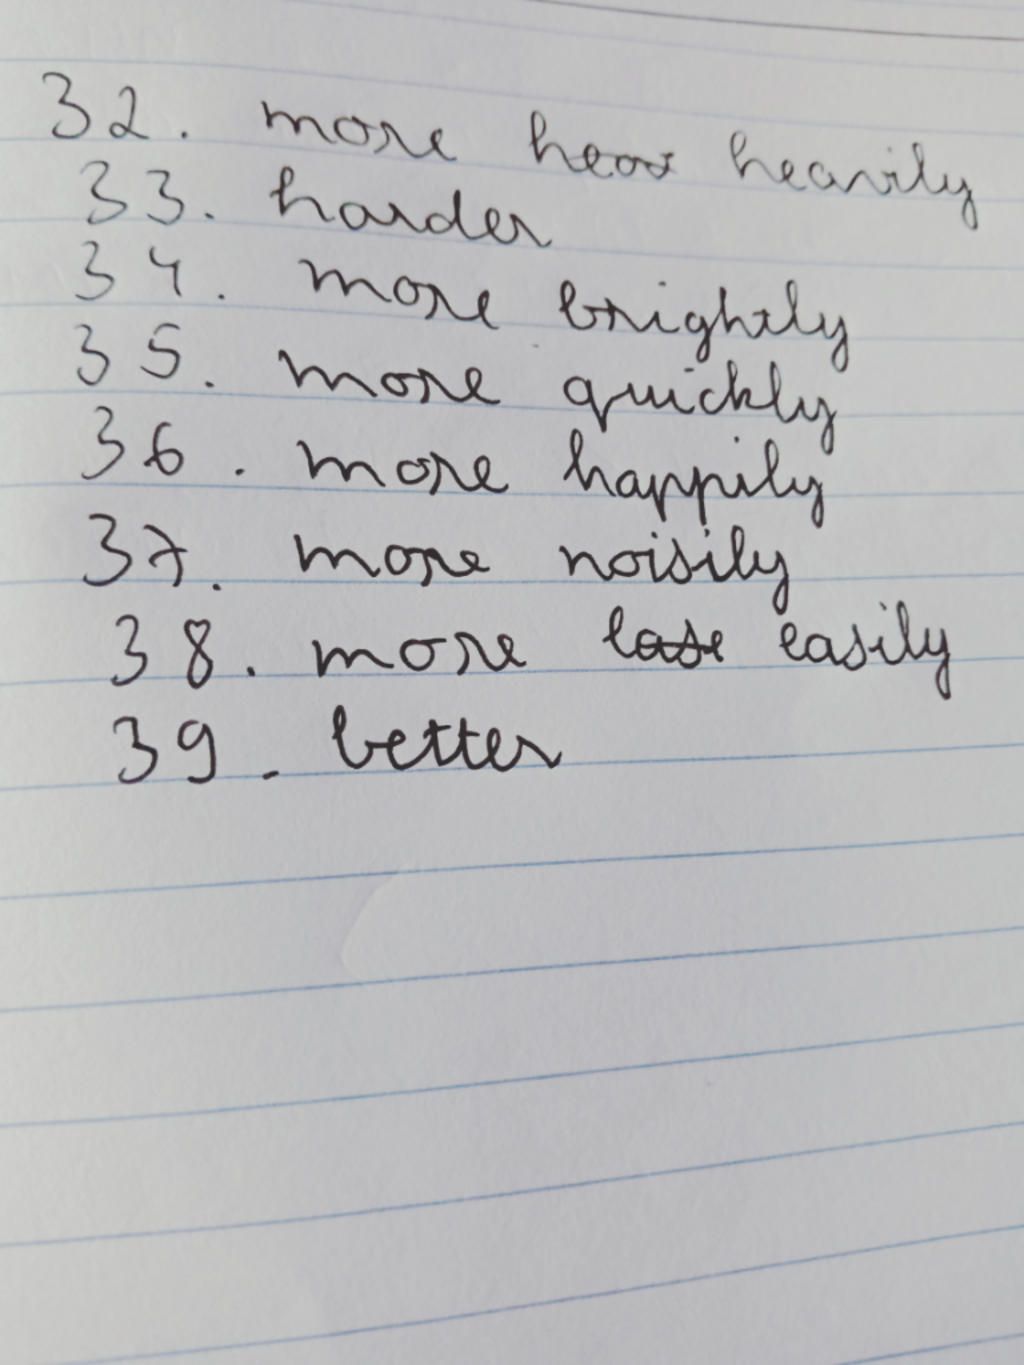 32. more heavily
33. harder
34. more brightly
35. more quickly
36. more happily
37. more noisily
38. more easily
39. better